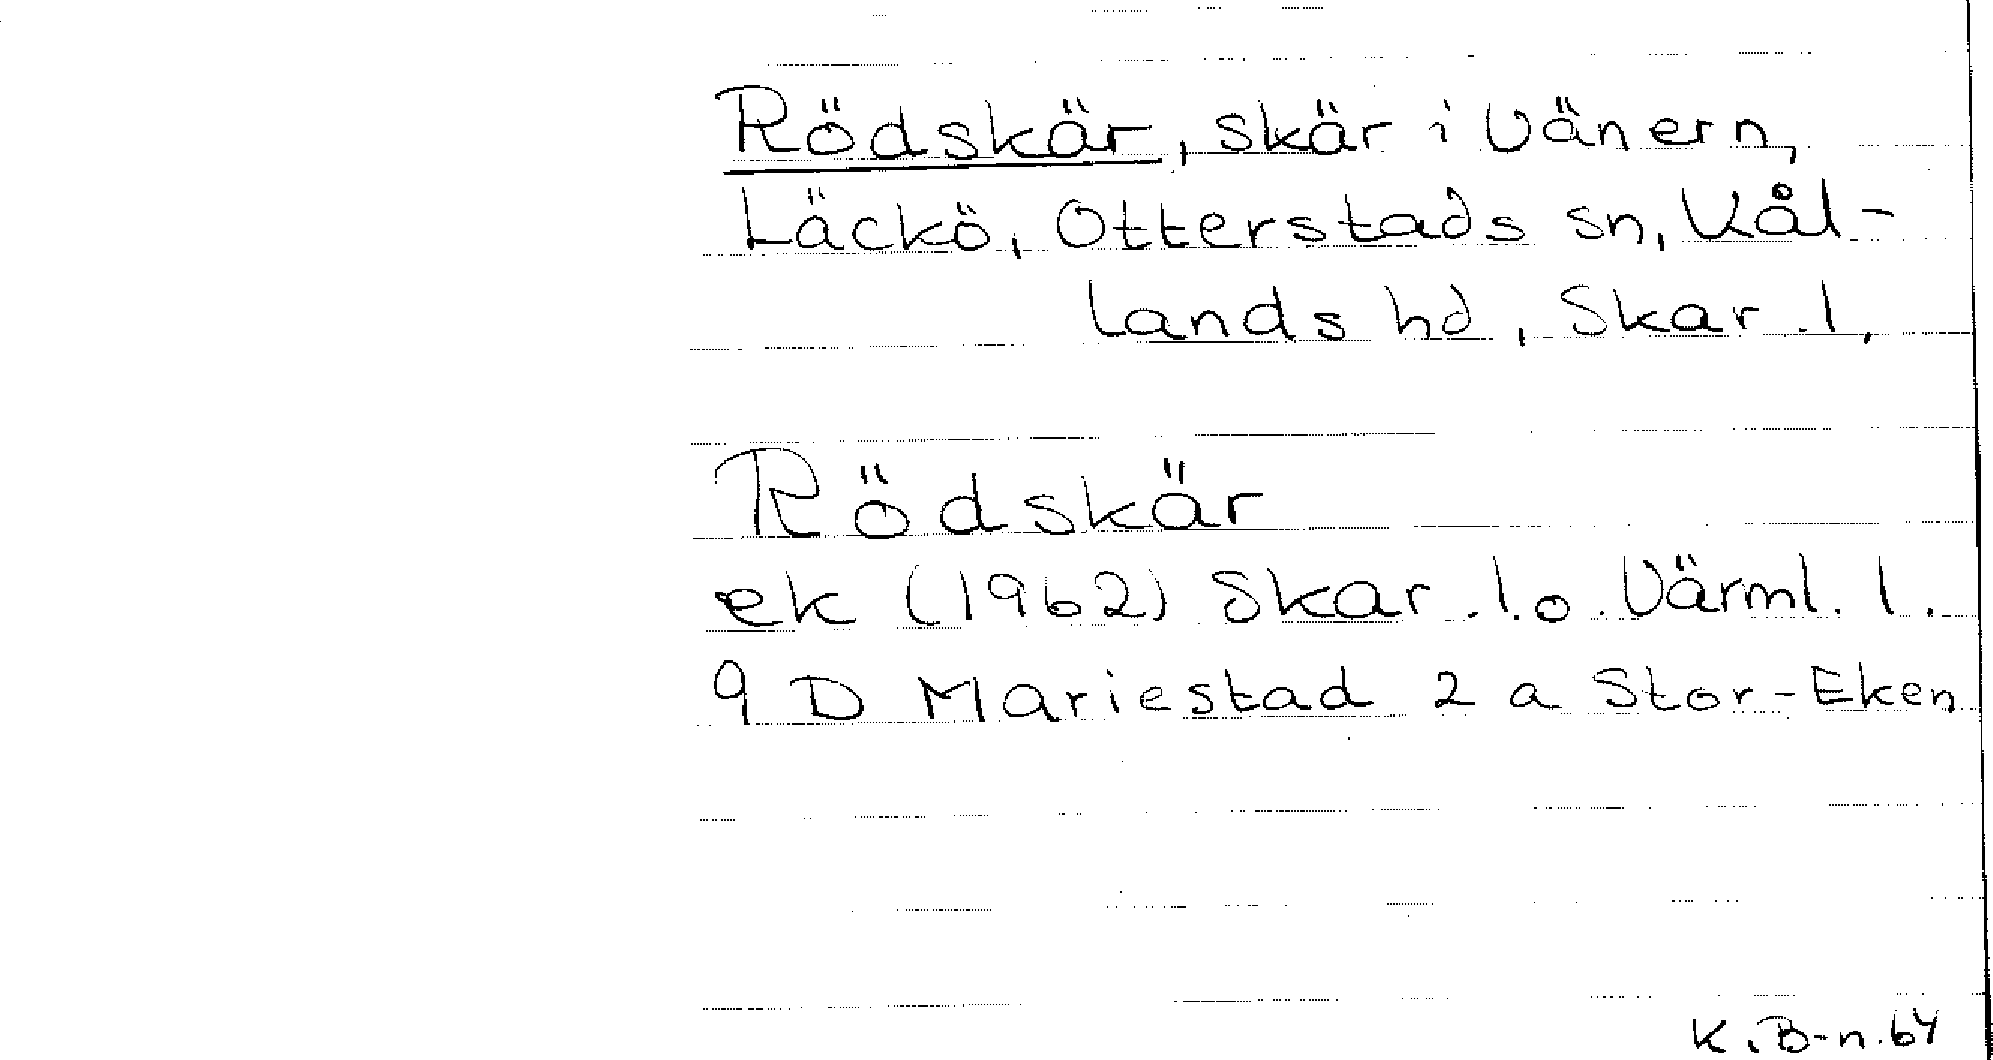 Rödskär, skär i Vänern,
Läckö, Otterstads sn, Kål-
lands hd, Skar. l.
Rödskär
ek (1962) Skar. l. o. Värml. l.
9 D Mariestad 2 a Stor-Eken
K. B-n. 64